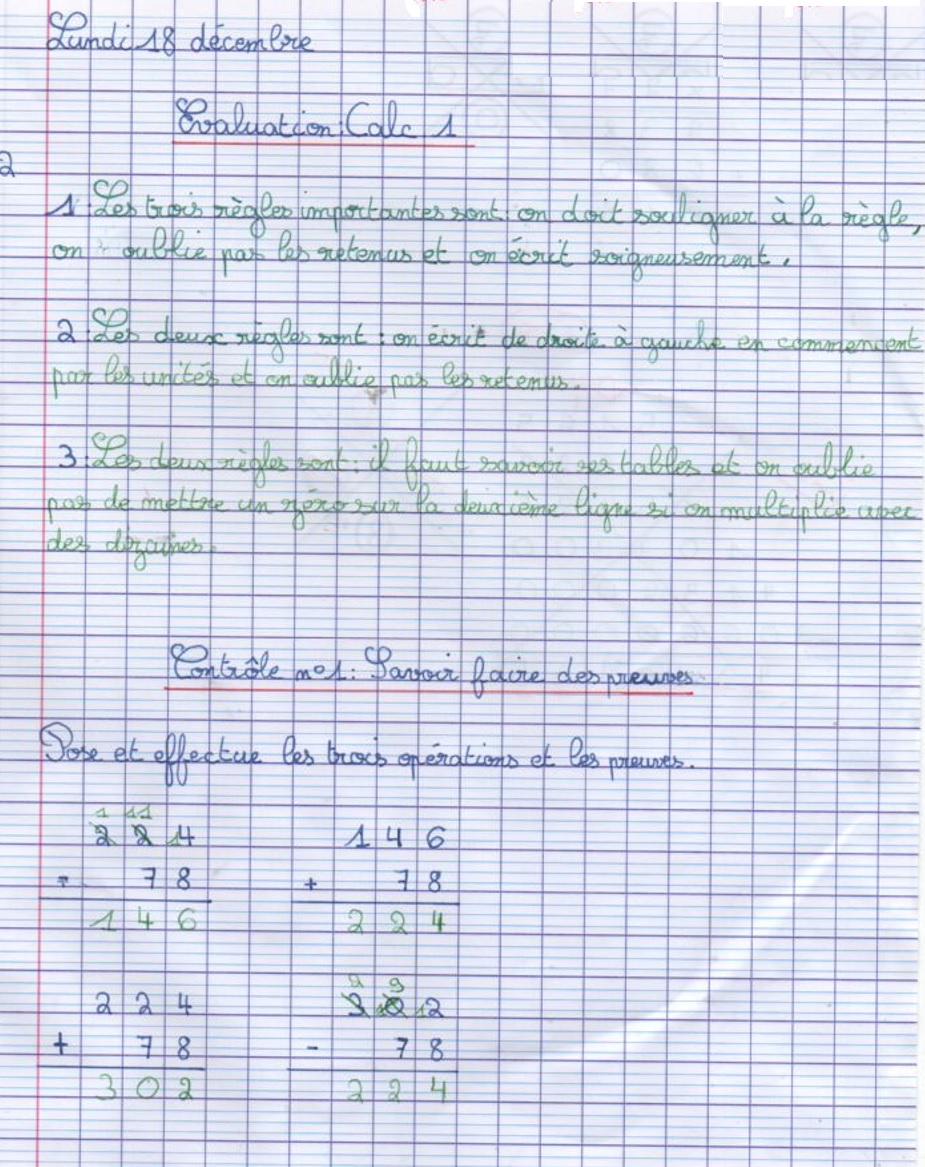 Lundi 18 décembre
Evaluation: Calc 1
2
1. Les trois règles importantes sont: on doit souligner à la règle,
on oublie pas les retenus et on écrit soigneusement.
2. Les deux règles sont : on écrit de droite à gauche en commencent
par les unités et on oublie pas les retenus.
3. Les deux règles sont: il faut savoir ses tables et on oublie
pas de mettre un zéro sur la deuxième ligne si on multiplie avec
des dizaines.
Contrôle n°1: Savoir faire des preuves
Pose et effectue les trois opérations et les preuves.
1 11
2 2 14 1 4 6
- 7 8 + 7 8
1 4 6 2 2 4
2 9
2 2 4 3 10 12
+ 7 8 - 7 8
3 0 2 2 2 4